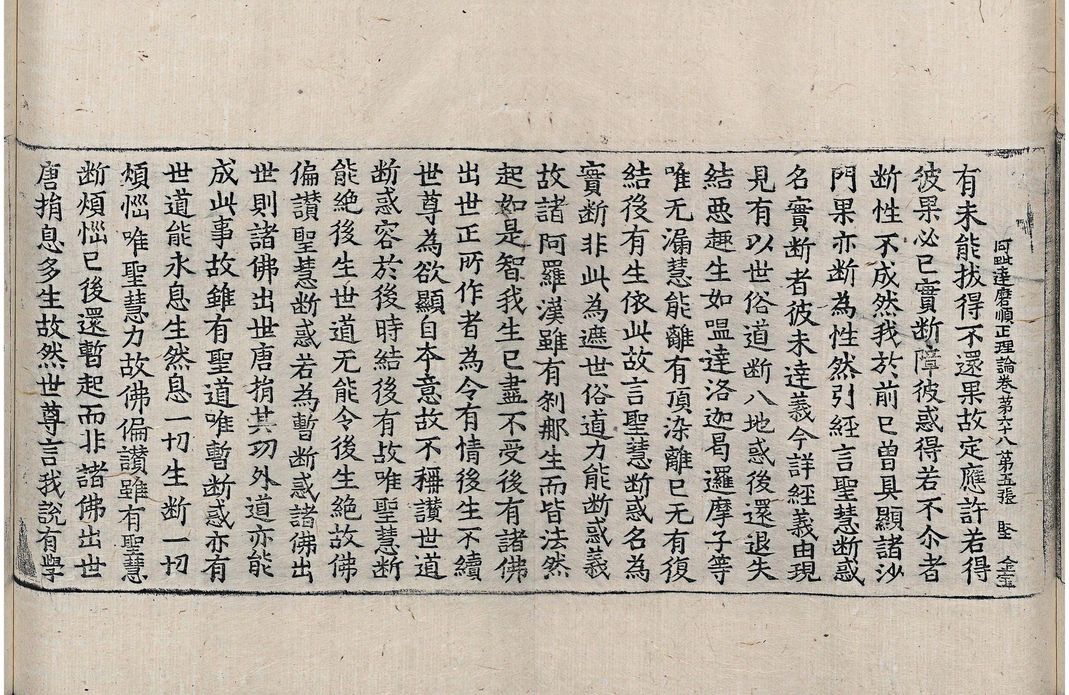 阿毗達磨順正理論卷第六十八 第五張 堅
有未能拔得不還果故定應許若得
彼果必已實断障彼惑得若不尒者
断性不成然我於前已曾具顯諸沙
門果亦断為性然引經言聖慧断惑
名實断者彼未達義今詳經義由現
見有以世俗道断八地惑後還退失
結惡趣生如嗢達洛迦曷邏摩子等
唯无漏慧能離有頂染離已无有復
結後有生依此故言聖慧断惑名為
實断非此為遮世俗道力能断惑義
故諸阿羅漢雖有刹那生而皆法然
起如是智我生已盡不受後有諸佛
出世正所作者為令有情後生不續
世尊為欲顯自本意故不稱讃世道
断惑容於後時結後有故唯聖慧断
能絶後生世道无能令後生絶故佛
偏讃聖慧断惑若為暫断惑諸佛出
世則諸佛出世唐捐其功外道亦能
成此事故雖有聖道唯暫断惑亦有
世道能永息生然息一切生断一切
煩惱唯聖慧力故佛偏讃雖有聖慧
断煩惱已後還暫起而非諸佛出世
唐捐息多生故然世尊言我說有學